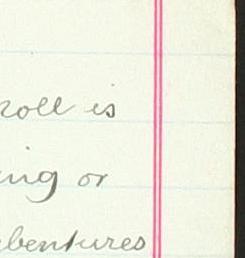 roll is
ing or
bentures